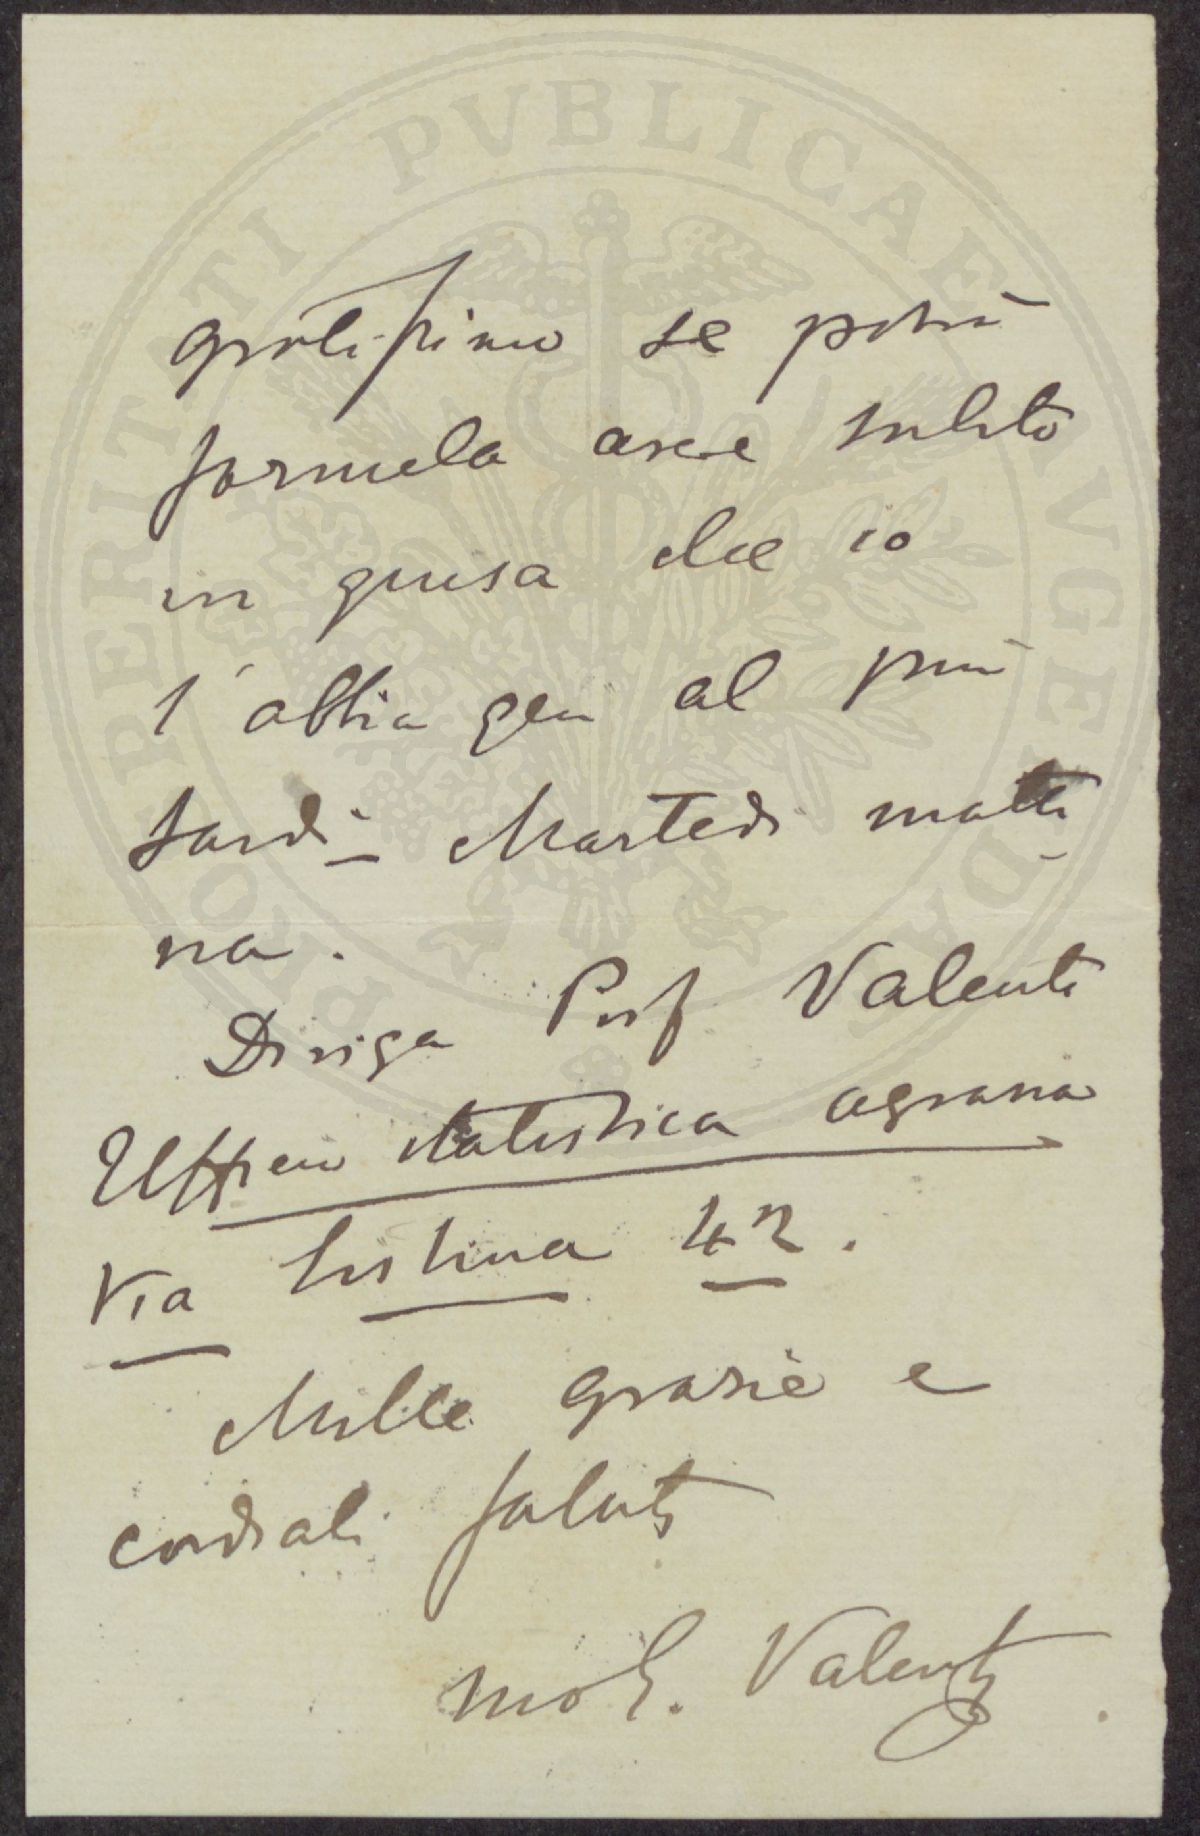 PROSPERITATI PVBLICAE AVGENDAE
gratissimo se potrà
farmela avere subito
in guisa che io
l'abbia qui al più
tardi Martedì matti
na.
Diriga Prof Valenti
Ufficio statistica agraria
Via Sistina 42.
Mille grazie e
cordiali saluti
suo G. Valenti